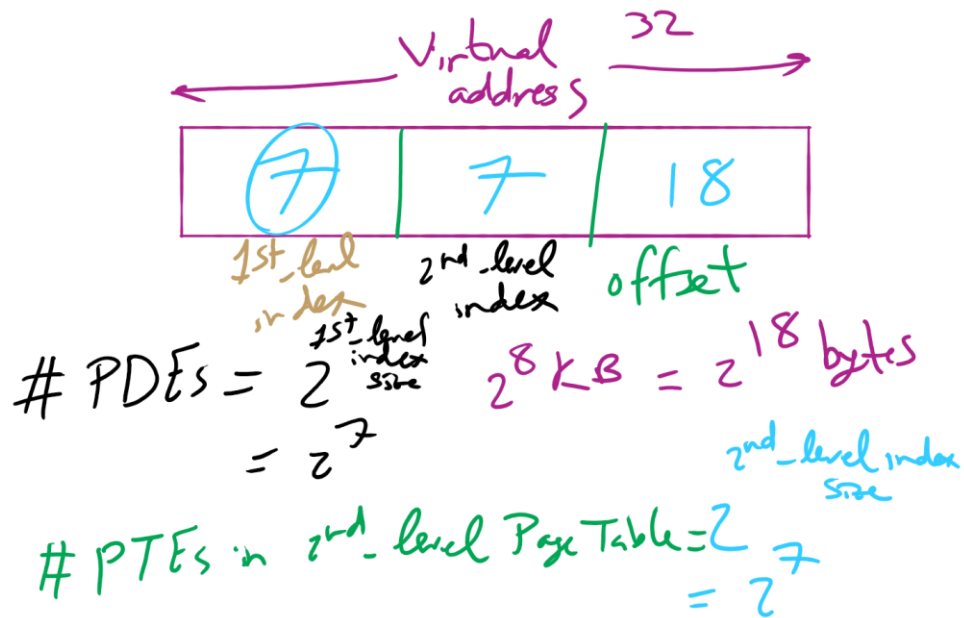 Virtual address 32
7 7 18
1st_level index 2nd_level index offset
# PDEs = 2^1st_level index size 2^8 KB = 2^18 bytes
= 2^7
# PTEs in 2nd_level Page Table = 2^2nd_level index size
= 2^7